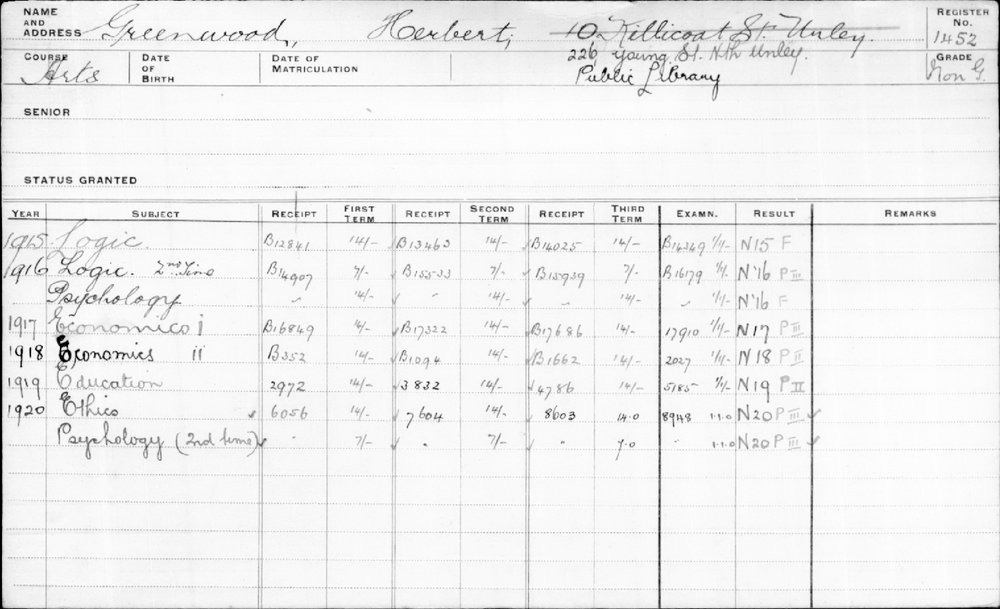 NAME AND ADDRESS Greenwood, Herbert, 10 Killicoat St. Unley. REGISTER No. 1452
226 young St. Nth Unley.
Public Library
COURSE Arts DATE OF BIRTH DATE OF MATRICULATION GRADE Non G.
SENIOR
STATUS GRANTED
YEAR SUBJECT RECEIPT FIRST TERM RECEIPT SECOND TERM RECEIPT THIRD TERM EXAMN. RESULT REMARKS
1915 Logic. B12841 14/- B13463 14/- B14025 14/- B14349 1/1/- N15 F
1916 Logic. 2nd Time B14907 7/- B15533 7/- B15939 7/- B16179 1/1/- N'16 P III
Psychology " 14/- " 14/- " 14/- " 1/1/- N'16 F
1917 Economics i B16849 14/- B17322 14/- B17686 14/- 17910 1/1/- N17 P III
1918 Economics ii B352 14/- B1094 14/- B1662 14/- 2027 1/1/- N18 P II
1919 Education 2972 14/- 3832 14/- 4786 14/- 5185 1/1/- N19 P II
1920 Ethics 6056 14/- 7604 14/- 8603 14.0 8948 1.1.0 N20 P III
Psychology (2nd time) " 7/- " 7/- " 7.0 " 1.1.0 N20 P III